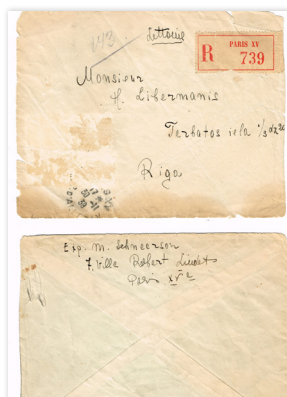 143
Lettonie
R PARIS XV
739
Monsieur
H. Libermanis
Terbatos iela 1/3 dz 20
Riga
Exp. M. Schneerson
7, Villa Robert Lindet
Paris XVe